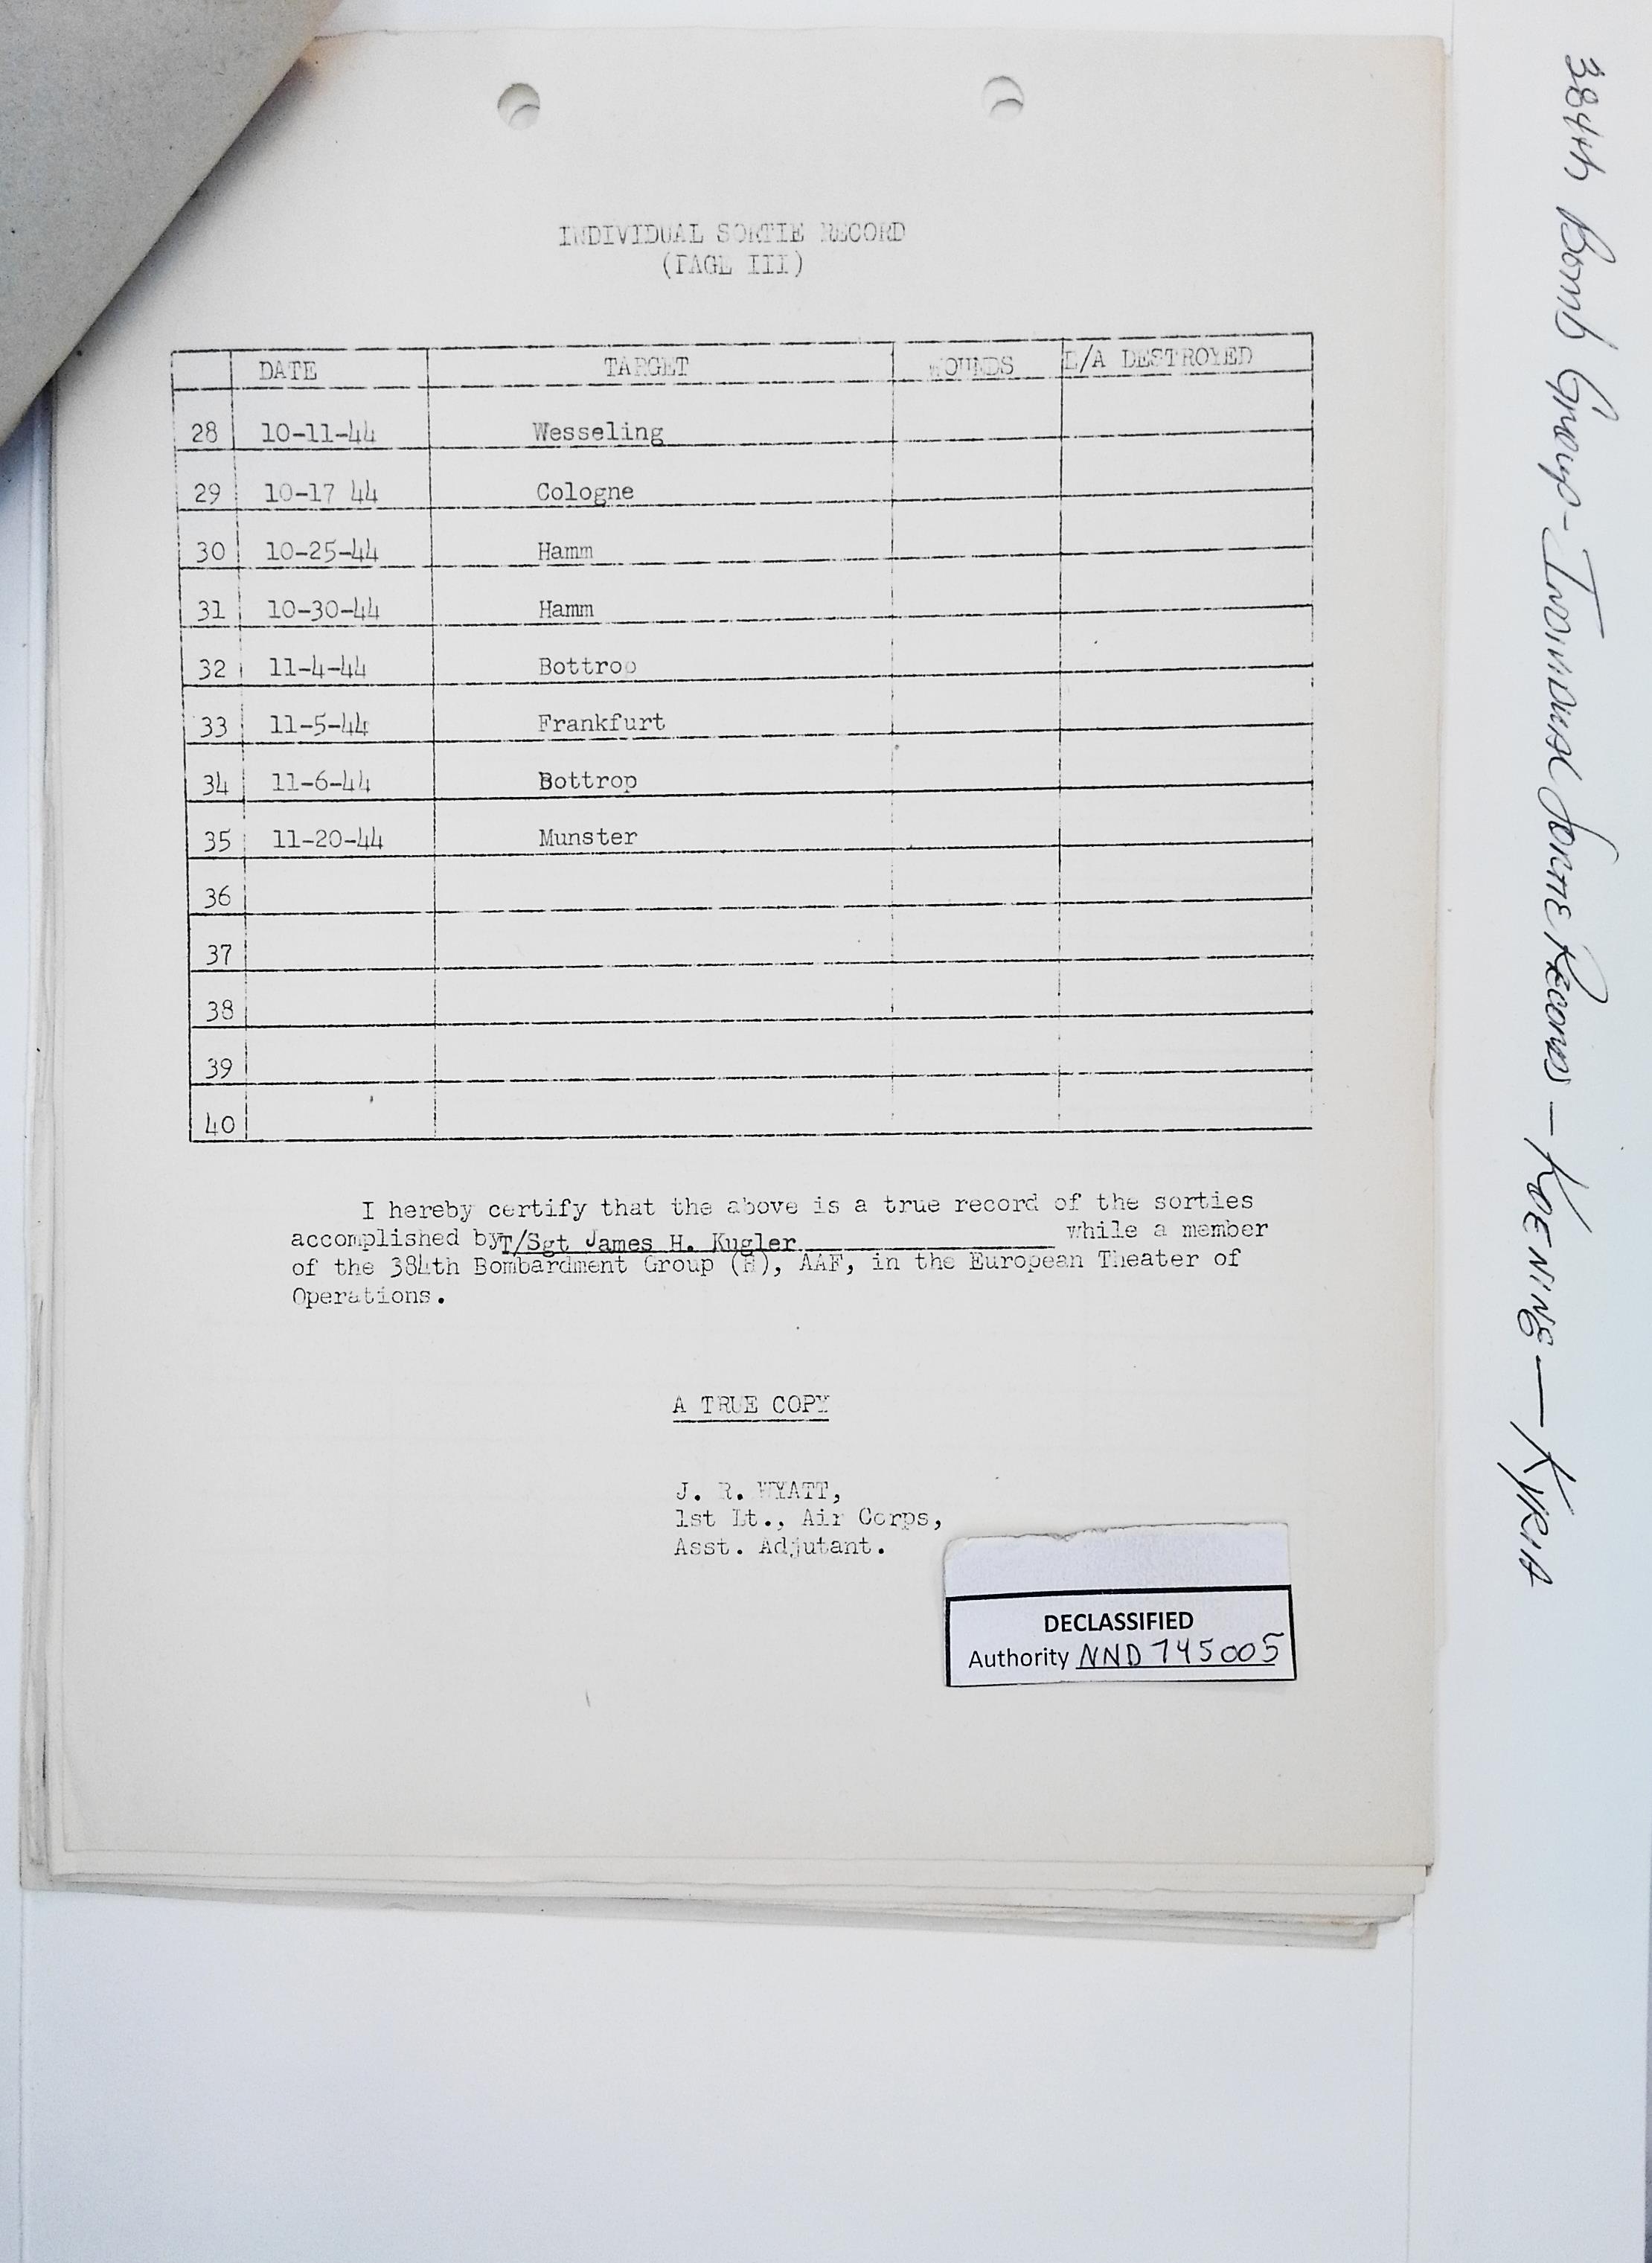 INDIVIDUAL SORTIE RECORD
(PAGE III)
DATE TARGET WOUNDS E/A DESTROYED
28 10-11-44 Wesseling
29 10-17 44 Cologne
30 10-25-44 Hamm
31 10-30-44 Hamm
32 11-4-44 Bottrop
33 11-5-44 Frankfurt
34 11-6-44 Bottrop
35 11-20-44 Munster
36
37
38
39
40
I hereby certify that the above is a true record of the sorties
accomplished by T/Sgt James H. Kugler while a member
of the 384th Bombardment Group (H), AAF, in the European Theater of
Operations.
A TRUE COPY
J. R. WYATT,
1st Lt., Air Corps,
Asst. Adjutant.
DECLASSIFIED
Authority NND 745005
384th Bomb Group - Individual Sortie Records — KOENING — KYRIA